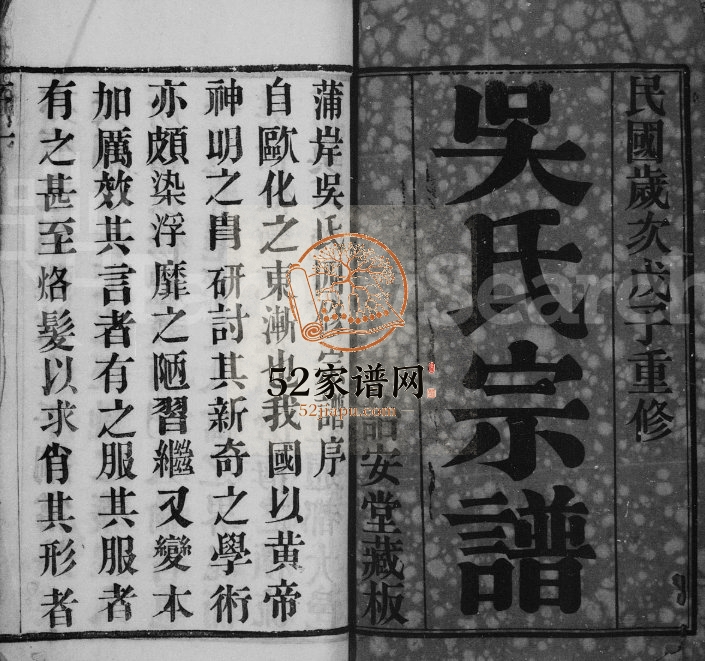 民國歲次戊子重修
吳氏宗譜
詒安堂藏板
蒲岸吳氏重修宗譜序
自歐化之東漸也我國以黄帝
神明之胄研討其新奇之學術
亦頗染浮靡之陋習繼又變本
加厲效其言者有之服其服者
有之甚至烙髮以求肖其形者
52家谱网
52jiapu.com
Search